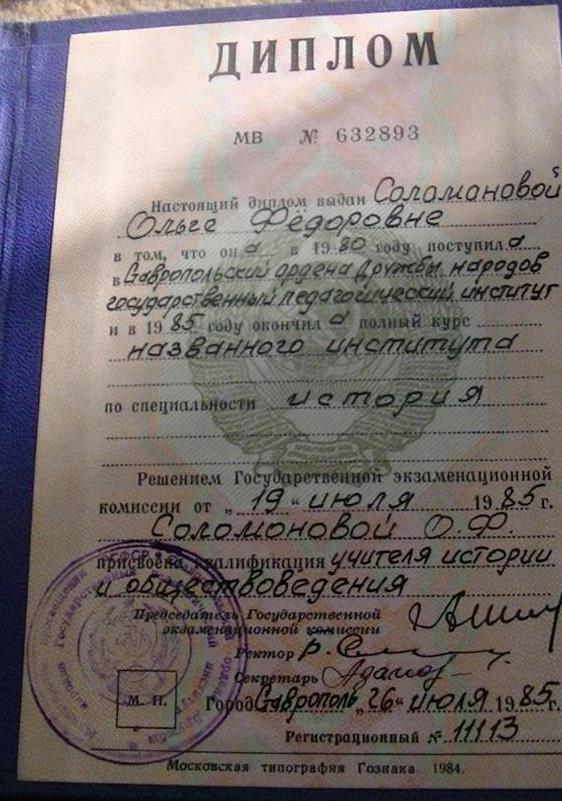 ДИПЛОМ
МВ № 632893
Настоящий диплом выдан Соломоновой
Ольге Фёдоровне
в том, что она в 1980 году поступила
в Ставропольский ордена Дружбы народов
государственный педагогический институт
и в 1985 году окончила полный курс
названного института
по специальности история
Решением Государственной экзаменационной
комиссии от „19“ июля 1985 г.
Соломоновой О.Ф.
присвоена квалификация учителя истории
и обществоведения
Председатель Государственной
экзаменационной комиссии
Ректор
Секретарь
М. П.
Город Ставрополь „26“ июля 1985 г.
Регистрационный № 11113
Московская типография Гознака. 1984.